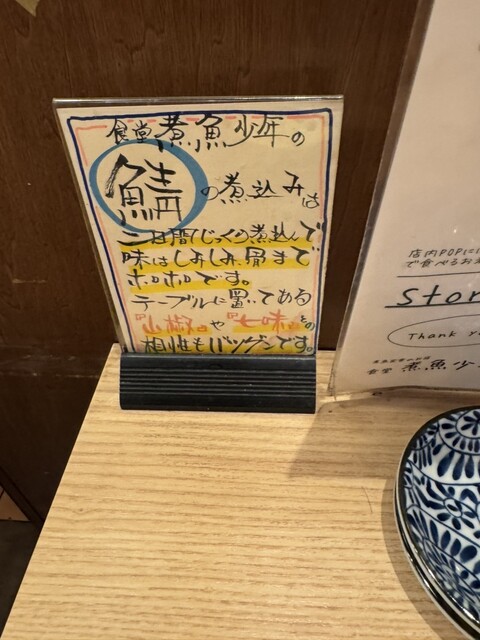 食堂煮魚少年の
鯖の煮込みは
三日間じっくり煮込んで
味はしみしみ、骨まで
ホロホロです。
テーブルに置いてある
『山椒』や『七味』との
相性もバツグンです。
店内POP
で食べるお
Stor
Thank y
食堂 煮魚少